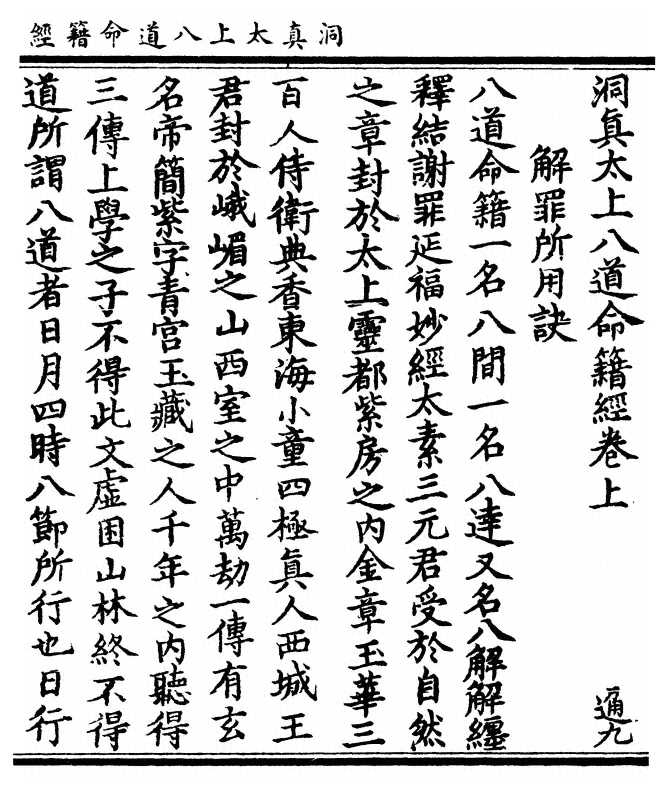 洞真太上八道命籍經
洞真太上八道命籍經卷上 通九
解罪所用訣
八道命籍一名八間一名八達又名八解解纏
釋結謝罪延福妙經太素三元君受於自然
之章封於太上靈都紫房之內金章玉華三
百人侍衛典香東海小童四極真人西城王
君封於峨嵋之山西室之中萬劫一傳有玄
名帝簡紫字青宮玉藏之人千年之內聽得
三傳上學之子不得此文虛困山林終不得
道所謂八道者日月四時八節所行也日行